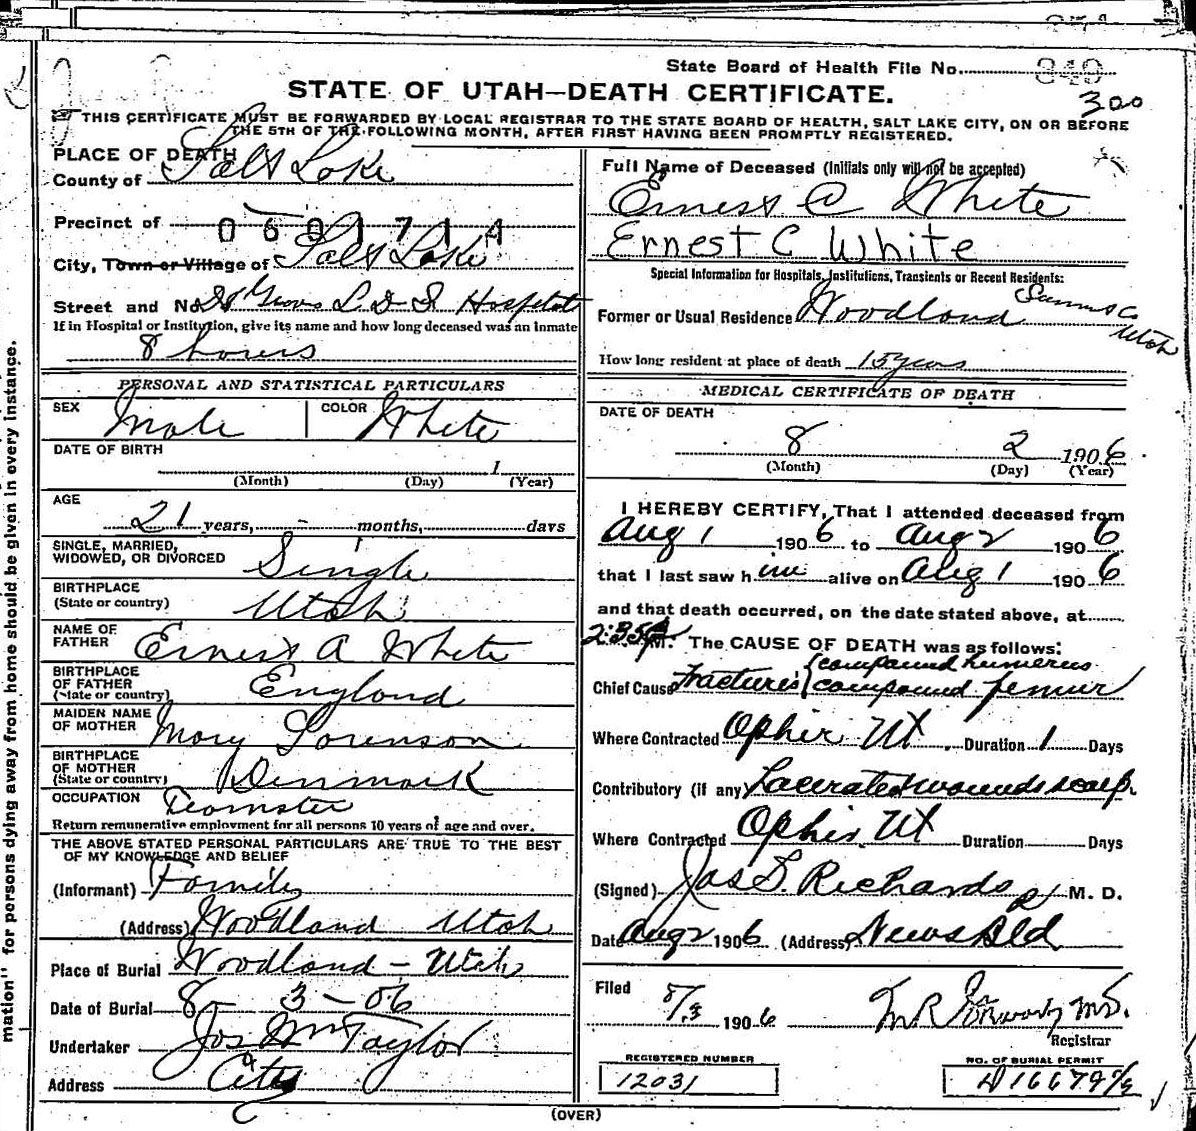 State Board of Health File No. 849
300
STATE OF UTAH—DEATH CERTIFICATE.
THIS CERTIFICATE MUST BE FORWARDED BY LOCAL REGISTRAR TO THE STATE BOARD OF HEALTH, SALT LAKE CITY, ON OR BEFORE
THE 5TH OF THE FOLLOWING MONTH, AFTER FIRST HAVING BEEN PROMPTLY REGISTERED.
PLACE OF DEATH
County of Salt Lake
Precinct of
0601714
City, Town or Village of Salt Lake
Street and No. Dr Groves L. D. S. Hospital
If in Hospital or Institution, give its name and how long deceased was an inmate
8 hours
PERSONAL AND STATISTICAL PARTICULARS
SEX Male COLOR White
DATE OF BIRTH
1
(Month) (Day) (Year)
AGE
21 years, - months, days
SINGLE, MARRIED,
WIDOWED, OR DIVORCED Single
BIRTHPLACE
(State or country) Utah
NAME OF
FATHER Ernest A White
BIRTHPLACE
OF FATHER
(State or country) England
MAIDEN NAME
OF MOTHER Mary Sorenson
BIRTHPLACE
OF MOTHER
(State or country) Denmark
OCCUPATION Teamster
Return remunerative employment for all persons 10 years of age and over.
THE ABOVE STATED PERSONAL PARTICULARS ARE TRUE TO THE BEST
OF MY KNOWLEDGE AND BELIEF
(Informant) Family
(Address) Woodland Utah
Place of Burial Woodland - Utah
Date of Burial 8 - 3 - 06
Undertaker Jos Wm Taylor
Address City
Full Name of Deceased (Initials only will not be accepted)
Ernest C White
Ernest C White
Special Information for Hospitals, Institutions, Transients or Recent Residents:
Former or Usual Residence Woodland Summit Co
Utah
How long resident at place of death 15 years
MEDICAL CERTIFICATE OF DEATH
DATE OF DEATH
8 2 1906
(Month) (Day) (Year)
I HEREBY CERTIFY, That I attended deceased from
Aug 1 1906 to Aug 2 1906
that I last saw him alive on Aug 1 1906
and that death occurred, on the date stated above, at
2:35 P M. The CAUSE OF DEATH was as follows:
compound humerus
Chief Cause Fractures compound femur
Where Contracted Ophir Ut. Duration 1 Days
Contributory (if any) Lacerated wounds scalp.
Where Contracted Ophir Ut Duration Days
(Signed) Jas S. Richards M. D.
Date Aug 2 1906 (Address) News Bld
Filed
8/3 1906 M.D.
Registrar
REGISTERED NUMBER
12031
NO. OF BURIAL PERMIT
(OVER)
mation" for persons dying away from home should be given in every instance.